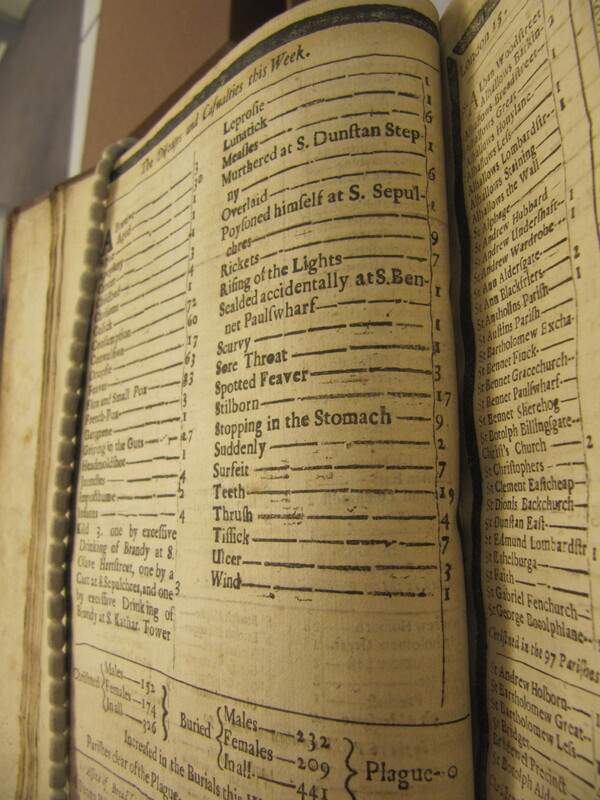 The Diseases and Casualties this Week.
Aged 30
Childbed
Chrisoms 1
Collick 1
Consumption 72
Convulsion 60
Dropsie 17
Feaver 63
Flox and Small Pox 83
French-Pox 3
Gangrene 1
Griping in the Guts 27
Headmouldshot 1
Jaundies 4
Imposthume 2
Infants 4
Kild 3. one by excessive
Drinking of Brandy at S.
Olave Hartstreet, one by a
Cart at S. Sepulchres, and one 3
by excessive Drinking of
Brandy at S. Kathar. Tower
Leprosie 1
Lunatick 1
Measles 6
Murthered at S. Dunstan Step-
ny 1
Overlaid
Poysoned himself at S. Sepul-
chres 1
Rickets 9
Rising of the Lights 7
Scalded accidentally at S. Ben-
net Paulswharf 1
Scurvy 1
Sore Throat 1
Spotted Feaver 3
Stilborn 17
Stopping in the Stomach 9
Suddenly 2
Surfeit 7
Teeth 19
Thrush 4
Tissick 7
Ulcer 3
Wind 1
Christned
Males 152
Females 174
In all 326
Buried
Males 232
Females 209
In all 441
Plague 0
Increased in the Burials this
Parishes clear of the Plague
London 15
Alban Woodstreet
Alhallows Barkin
Alhallows Breadstreet
Alhallows Great
Alhallows Honylane
Alhallows Less
Alhallows Lombardstr
Alhallows Staining
Alhallows the Wall
St Alphage
St Andrew Hubbard
St Andrew Undershaft
St Andrew Wardrobe
St Ann Aldersgate
St Ann Blackfriers
St Antholins Parish
St Austins Parish
St Bartholomew Excha
St Bennet Finck
St Bennet Gracechurch
St Bennet Paulswharf
St Bennet Sherehog
St Botolph Billingsgate
Christ's Church
St Christophers
St Clement Eastcheap
St Dionis Backchurch
St Dunstan East
St Edmund Lombardstr
St Ethelburga
St Faith
St Gabriel Fenchurch
St George Botolphlane
Christned in the 97 Parishes
St Andrew Holborn
St Bartholomew Great
St Bartholomew Less
St Bridget
Bridewel Precinct
St Botolph Ald